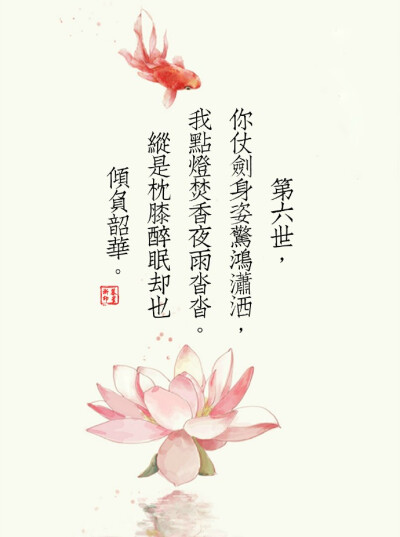 第六世，
你仗劍身姿驚鴻瀟洒，
我點燈焚香夜雨沓沓。
縱是枕膝醉眠却也
傾負韶華。